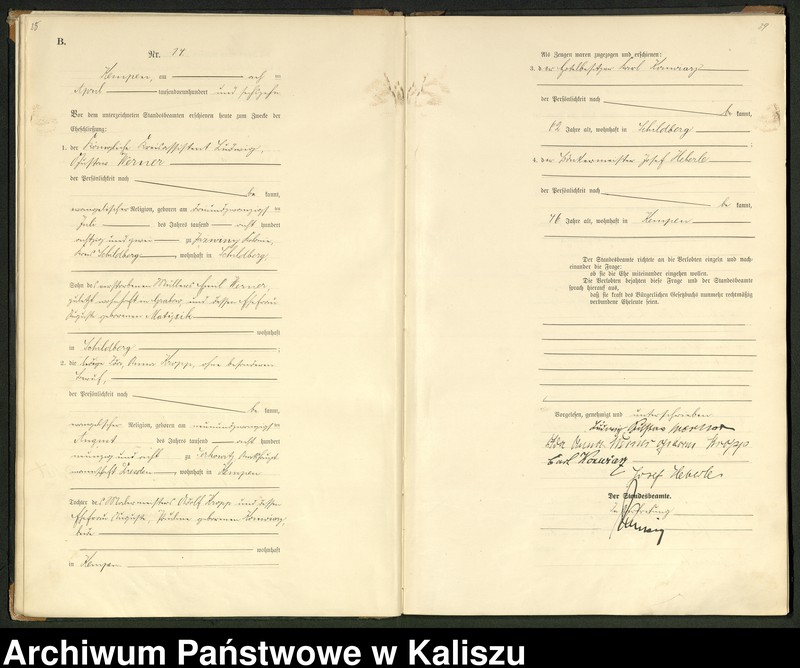 B.
Nr. 14
Kempen, am acht ten
April tausendneunhundert und sechzehn
Vor dem unterzeichneten Standesbeamten erschienen heute zum Zwecke der
Eheschließung:
1. der Ludwig
Gustav Werner
der Persönlichkeit nach
be kannt,
evangelischer Religion, geboren am ten
Juli des Jahres tausend acht hundert
achtzig und zu Kolonie,
Kreis Schildberg, wohnhaft in Schildberg
Sohn des verstorbenen Müllers Emil Werner,
zuletzt wohnhaft in Grabow und dessen Ehefrau
Auguste geborenen
wohnhaft
in Schildberg
2. die ledige Ida Anna Kropp, ohne besonderen
Beruf,
der Persönlichkeit nach
be kannt,
evangelischer Religion, geboren am neunundzwanzigsten
August des Jahres tausend acht hundert
neunzig und acht zu
Dresden, wohnhaft in Kempen
Tochter des Adolf Kropp und dessen
Ehefrau Auguste, Pauline geborenen Konwiarz,
beide
wohnhaft
in Kempen
Als Zeugen waren zugezogen und erschienen:
3. der Hotelbesitzer Karl Konwiarz
der Persönlichkeit nach
be kannt,
Jahre alt, wohnhaft in Schildberg
4. der Bäckermeister Josef Heberle
der Persönlichkeit nach
be kannt,
46 Jahre alt, wohnhaft in Kempen
Der Standesbeamte richtete an die Verlobten einzeln und nach-
einander die Frage:
ob sie die Ehe miteinander eingehen wollen.
Die Verlobten bejahten diese Frage und der Standesbeamte
sprach hierauf aus,
daß sie kraft des Bürgerlichen Gesetzbuchs nunmehr rechtmäßig
verbundene Eheleute seien.
Vorgelesen, genehmigt und unterschrieben
Ludwig Gustav Werner
Ida Anna Werner geborene Kropp
Carl Konwiarz
Josef Heberle
Der Standesbeamte.
In Vertretung
Archiwum Państwowe w Kaliszu